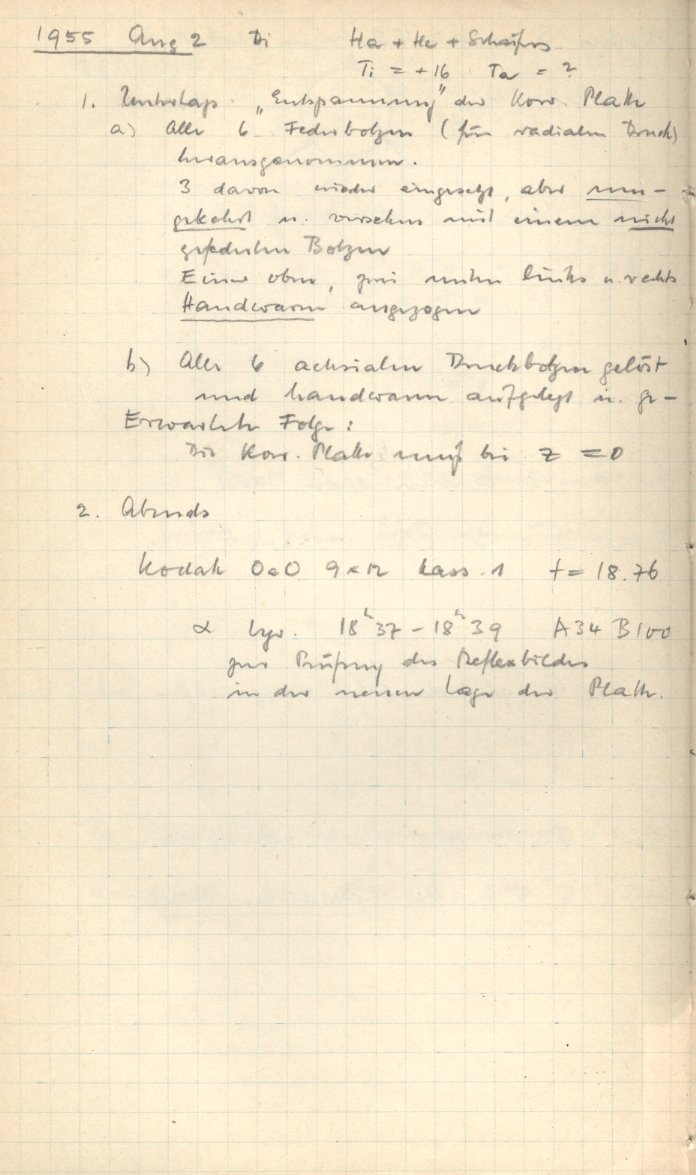 1955 Aug 2 Di Ha + He +
Ti = +16 Ta = ?
1. „Entspannung" der Korr. Platte
a) Alle 6 Federbolzen (für radialen Druck)
herausgenommen.
3 davon wieder eingesetzt, aber um-
gekehrt u. versehen mit einem nicht
gefederten Bolzen
Einer oben, zwei unten links u. rechts
Handwarm angezogen
b) Alle 6 achsialen Druckbolzen gelöst
und handwarm aufgelegt u. ge-
Erwartete Folge:
Die Korr. Platte muß bei z = 0
2. Abends
Kodak OaO 9x12 Kass. 1 t = 18.76
α Lyr. 18h37 - 18h39 A34 B100
zur Prüfung des Reflexbildes
in der neuen Lage der Platte.